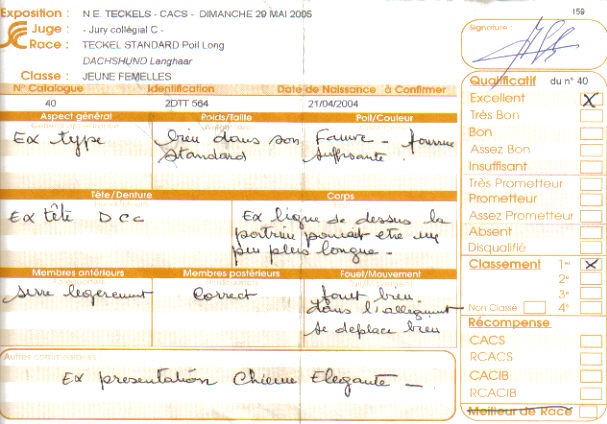 159
Exposition : N.E. TECKELS - CACS - DIMANCHE 29 MAI 2005
Juge : - Jury collégial C -
Race : TECKEL STANDARD Poil Long
DACHSHUND Langhaar
Classe : JEUNE FEMELLES
Signature :
N° Catalogue Identification Date de Naissance à Confirmer
40 2DTT 564 21/04/2004
Aspect général Poids/Taille Poil/Couleur
Ex type
bien dans son
standard
Fauve - fourrure
suffisante
Tête/Denture Corps
Ex tête DCC
Ex ligne de dessus la
poitrine pourrait etre un
peu plus longue -
Membres antérieurs Membres postérieurs Fouet/Mouvement
serre legerement
Correct
fouet bien
dans l'allignement
se deplace bien
Autres commentaires
Ex presentation Chienne Elegante -
Qualificatif du n° 40
Excellent X
Très Bon
Bon
Assez Bon
Insuffisant
Très Prometteur
Prometteur
Assez Prometteur
Absent
Disqualifié
Classement 1er X
2e
3e
Non Classé 4e
Récompense
CACS
RCACS
CACIB
RCACIB
Meilleur de Race